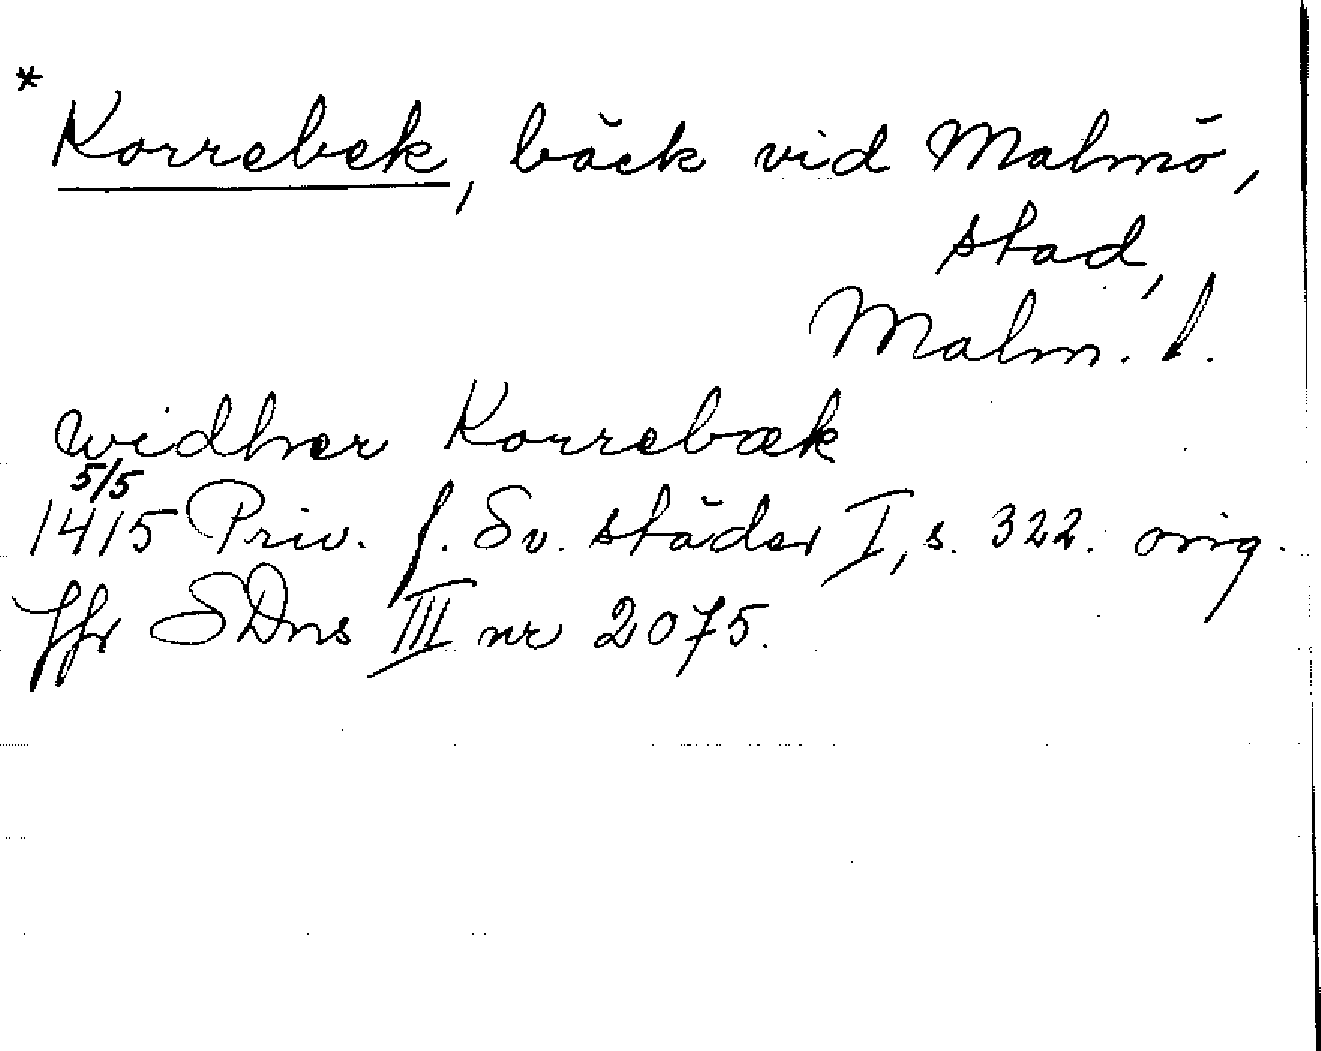 * Korrebek, bäck vid Malmö,
stad,
Malm. l.
widher Korrebæk
5/5
1415 Priv. f. Sv. städer I, s. 322. orig.
Jfr SDns III nr 2075.